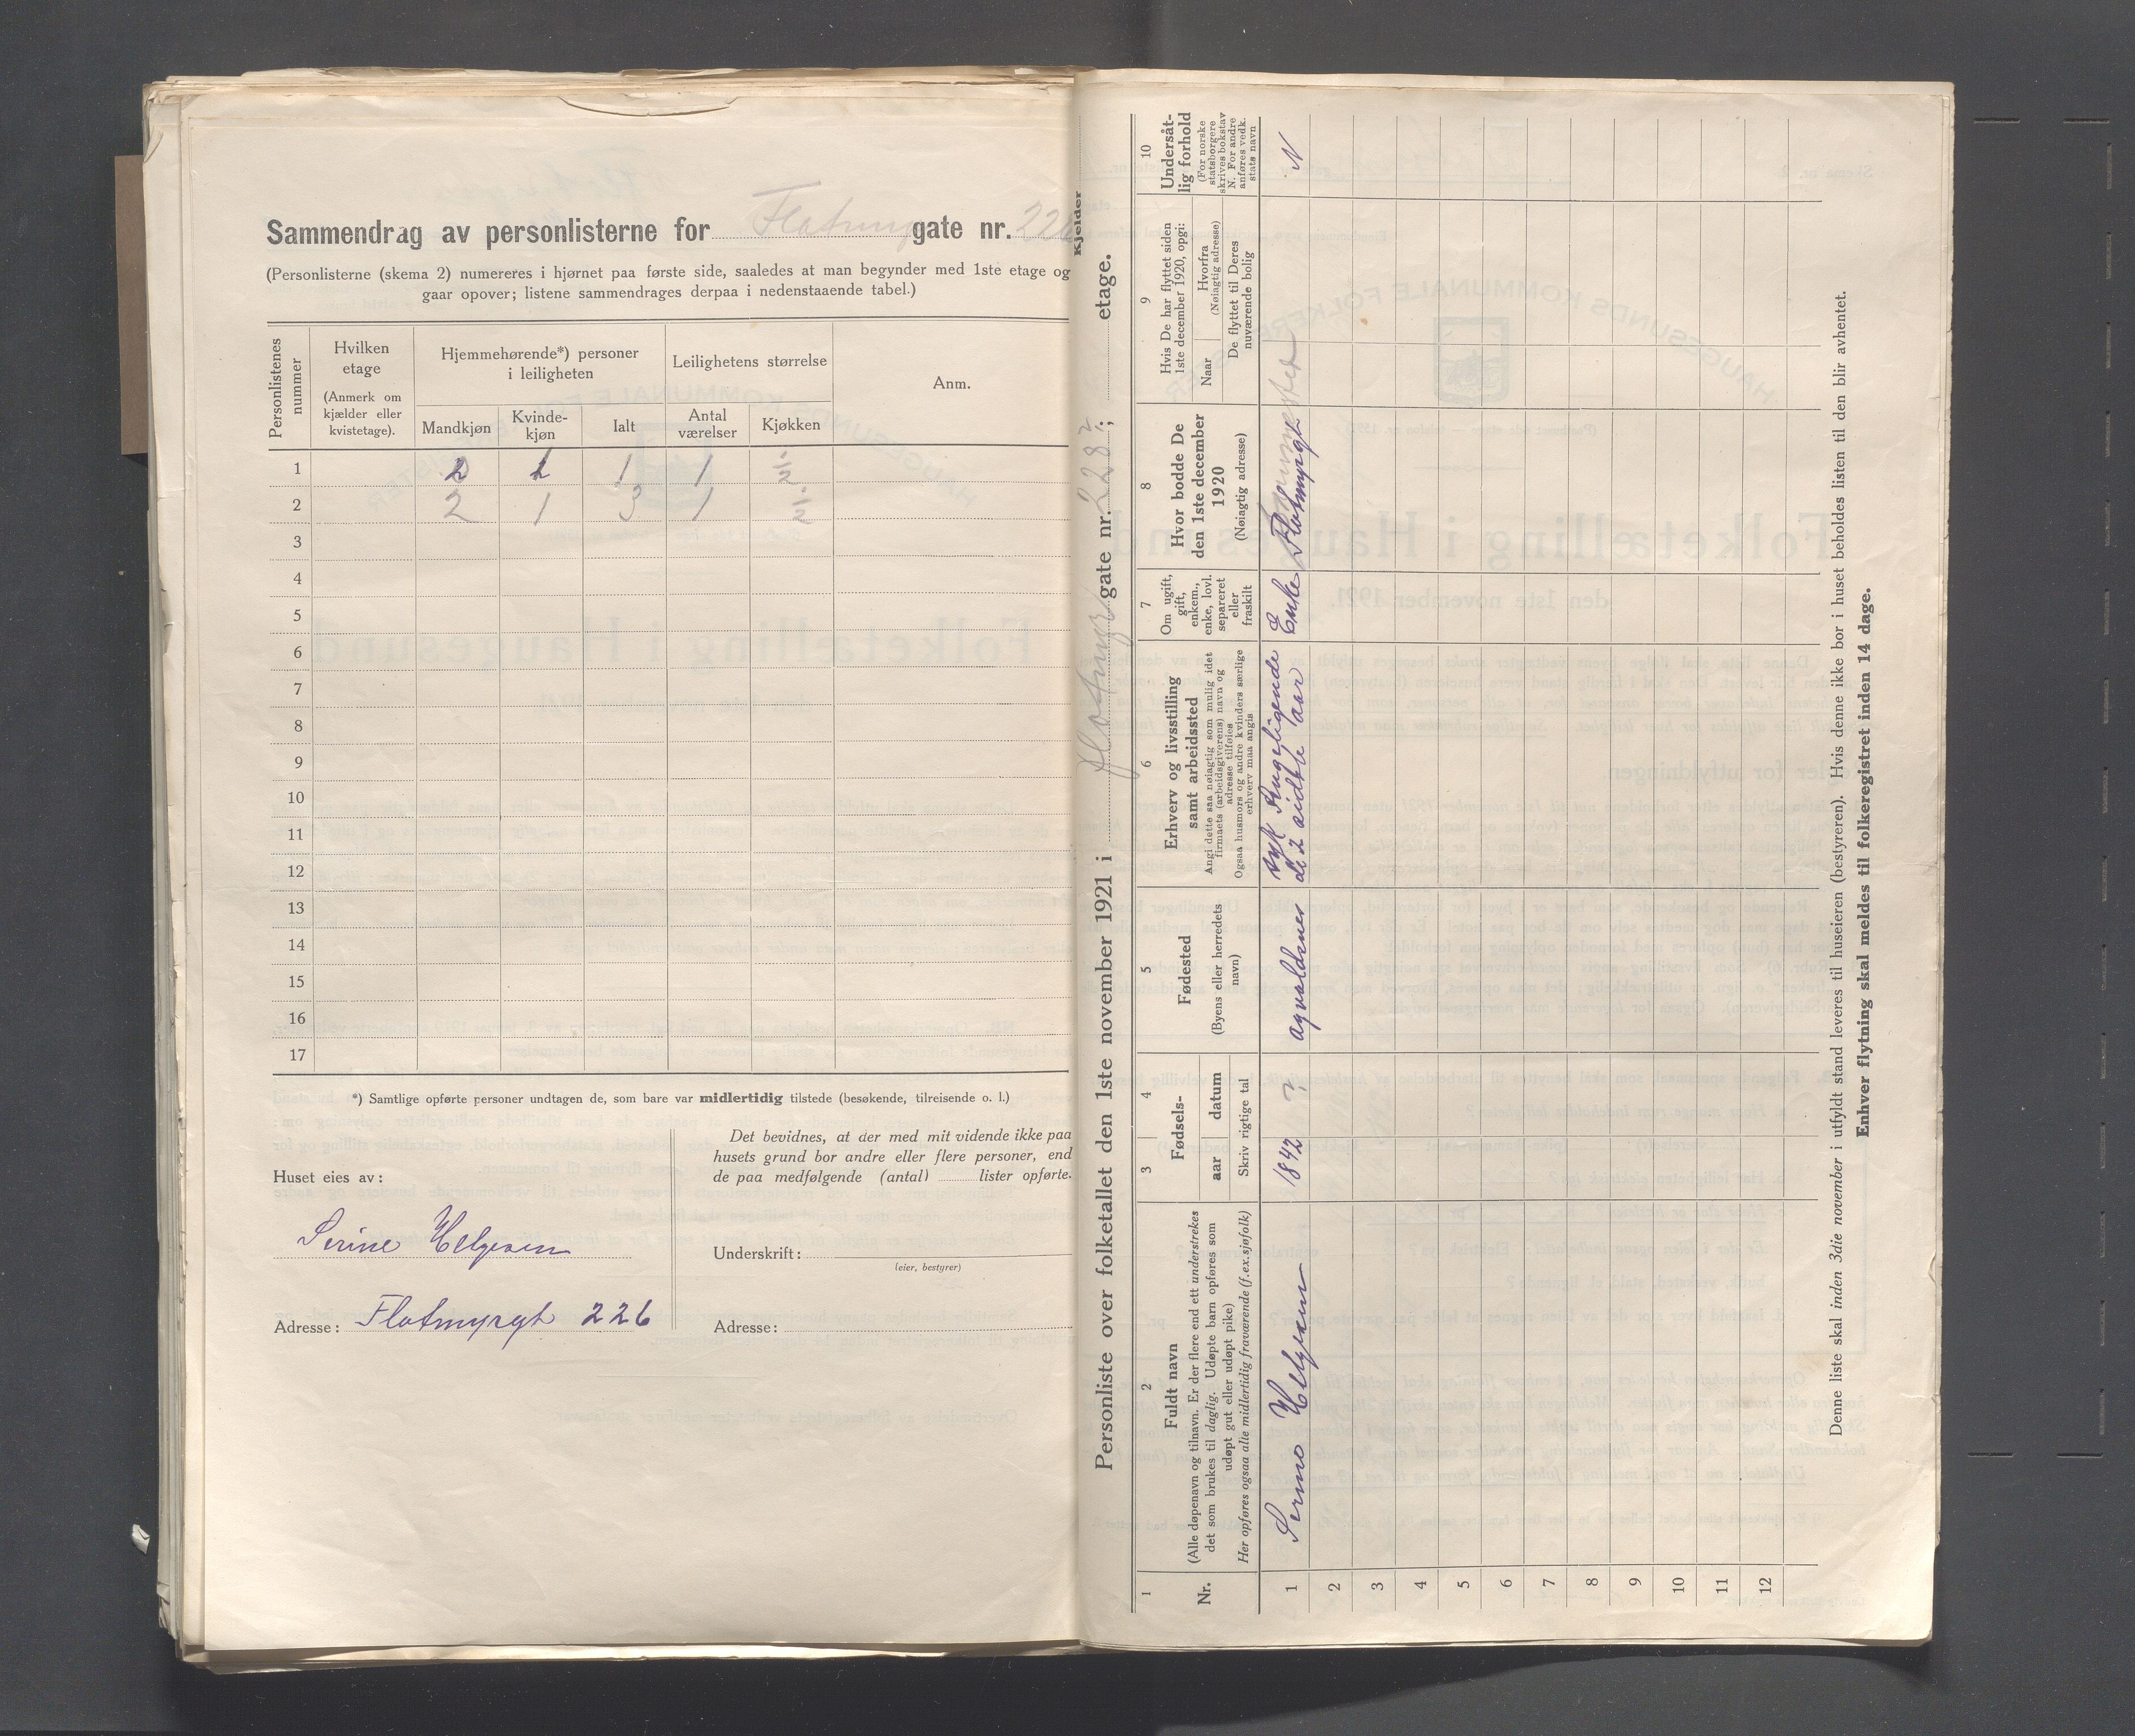 Sammendrag av personlisterne for Flatmyr gate nr. 226
(Personlisterne (skema 2) numereres i hjørnet paa første side, saaledes at man begynder med 1ste etage og
gaar opover; listene sammendrages derpaa i nedenstaaende tabel.)
Personlistenes nummer
Hvilken etage
(Anmerk om kjælder eller kvistetage).
Hjemmehørende*) personer i leiligheten
Mandkjøn
Kvinde-kjøn
Ialt
Leilighetens størrelse
Antal værelser
Kjøkken
Anm.
1 1 1 1 ½
2 2 1 3 1 ½
3
4
5
6
7
8
9
10
11
12
13
14
15
16
17
*) Samtlige opførte personer undtagen de, som bare var midlertidig tilstede (besøkende, tilreisende o. l.)
Huset eies av:
Serine Helgesen
Adresse: Flotmyrgt 226
Det bevidnes, at der med mit vidende ikke paa
husets grund bor andre eller flere personer, end
de paa medfølgende (antal) lister opførte.
Underskrift:
(eier, bestyrer)
Adresse:
Personliste over folketallet den 1ste november 1921 i Flotmyr gate nr. 228; etage.
Kjelder
1
Nr.
2
Fuldt navn
(Alle døpenavn og tilnavn. Er der flere end ett understrekes
det som brukes til daglig. Udøpte barn opføres som
udøpt gut eller udøpt pike)
Her opføres ogsaa alle midlertidig fraværende (f.ex. sjøfolk)
3 4
Fødsels-
aar datum
Skriv rigtige tal
5
Fødested
(Byens eller herredets
navn)
6
Erhverv og livsstilling
samt arbeidssted
Angi dette saa nøiagtig som mulig idet
firmaets (arbeidsgiverens) navn og
adresse tilføies
Ogsaa husmors og andre kvinders særlige
erhverv maa angis
7
Om ugift,
gift,
enkem.,
enke, lovl.
separeret
eller
fraskilt
8
Hvor bodde De
den 1ste december
1920
(Nøiagtig adresse)
9
Hvis De har flyttet siden
1ste december 1920, opgi:
Naar
Hvorfra
(Nøiagtig adresse)
De flyttet til Deres
nuværende bolig
10
Undersåt-
lig forhold
(For norske
statsborgere
skrives bokstav
N. For andre
anføres vedk.
stats navn
1 Serine Helgesen 1842 ? avaldsnes syk sengeliggende de 2 sidste aar Enke Flotmyrgt N
2
3
4
5
6
7
8
9
10
11
12
Denne liste skal inden 3die november i utfyldt stand leveres til huseieren (bestyreren). Hvis denne ikke bor i huset beholdes listen til den blir avhentet.
Enhver flytning skal meldes til folkeregistret inden 14 dage.